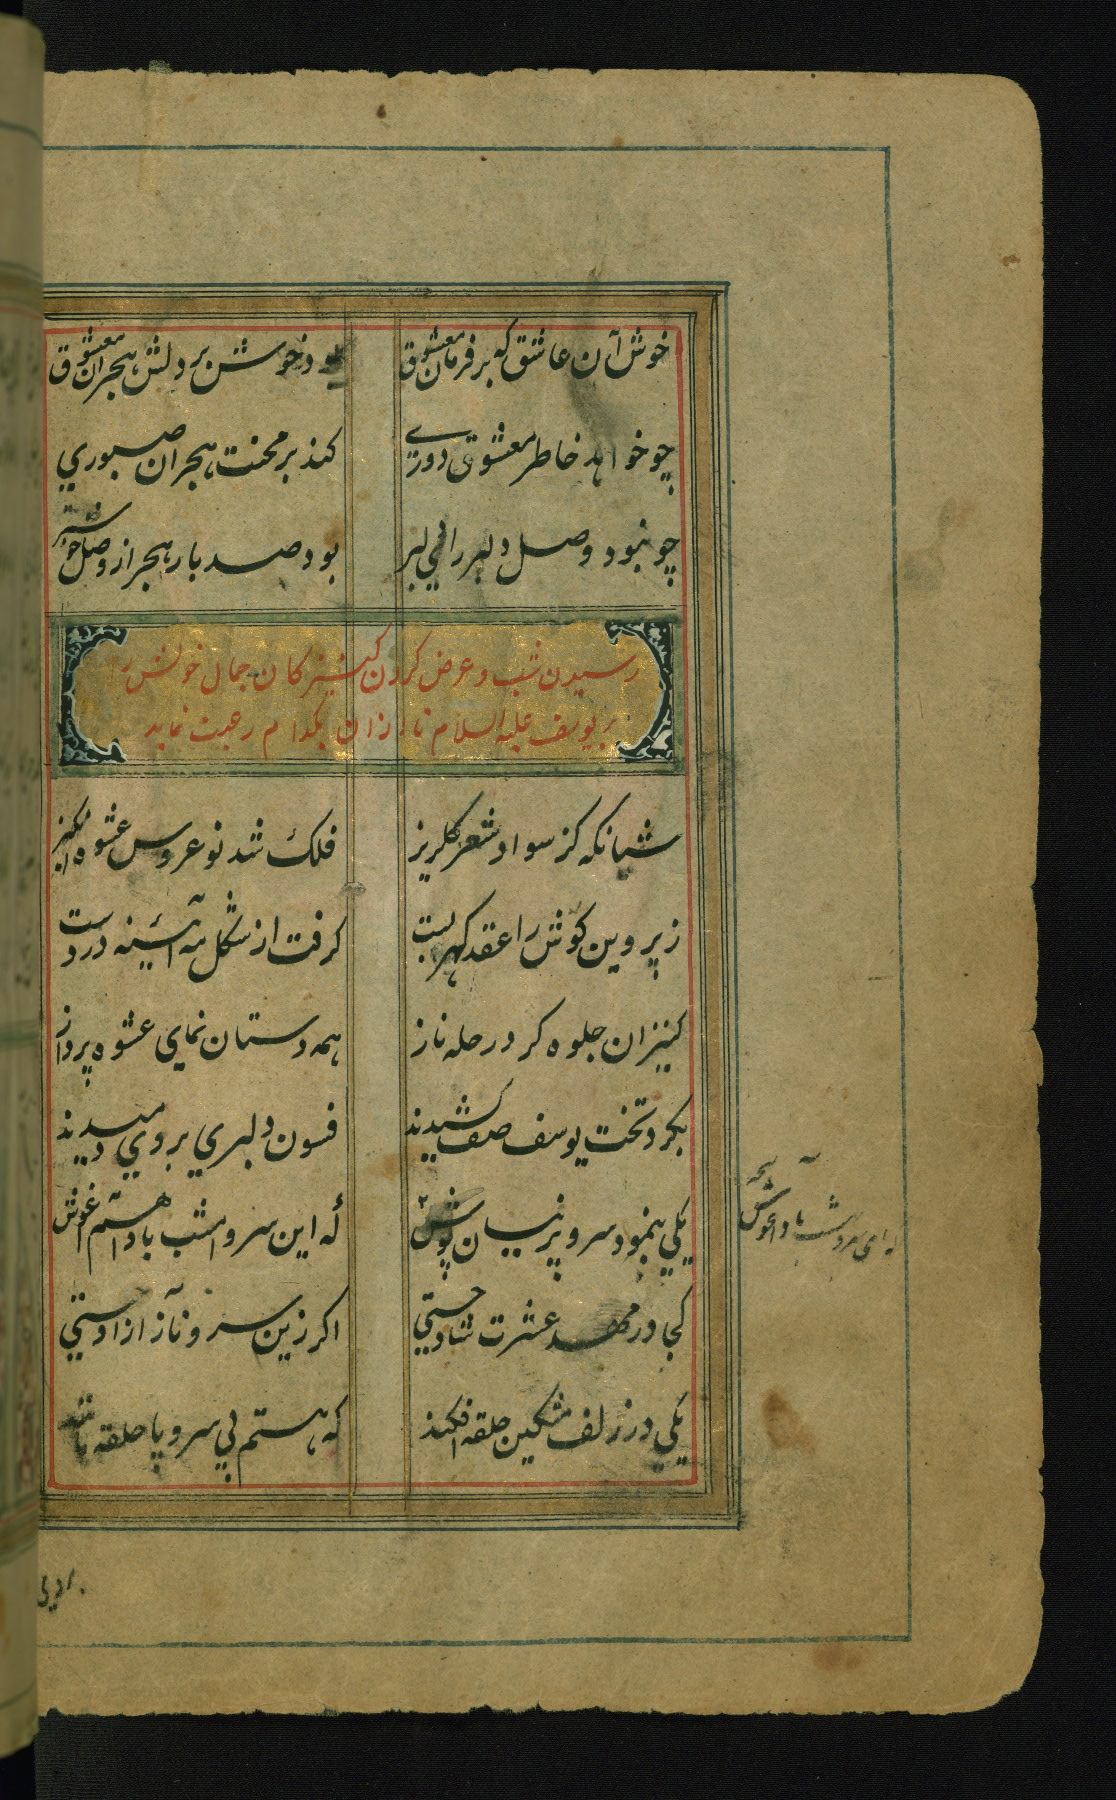 خوش آن عاشق که بر فرمان معشوق بود خوش بر دلش هجران معشوق
چو خواهد خاطر معشوق دوری کند بر محنت هجران صبوری
چو نبود وصل دلبر رای دلبر بود صد بار هجر از وصل خوشتر
رسیدن شب و عرض کردن کنیزکان جمال خویش را
بر یوسف علیه السلام تا از ان بکدام رغبت نماید
شبانکه کز سواد شعر کلریز فلک شد نو عروس عشوه انکیز
ز پروین کوش را عقد کهر بست کرفت از شکل مه آئینه در دست
کنیزان جلوه کر در حله ناز همه دستان نمای عشوه پرداز
بکرد تخت یوسف صف کشیدند فسون دلبری بر وی دمیدند
یکی بنمود سرو پرنیان پوش که این سرو امشب بادا هم آغوش
کجا در مهد عشرت شاد خسپی اکر زین سرو ناز ازاد خسپی
یکی در زلف مشکین حلقه افکند که هستم بی سر و پا حلقه مانند